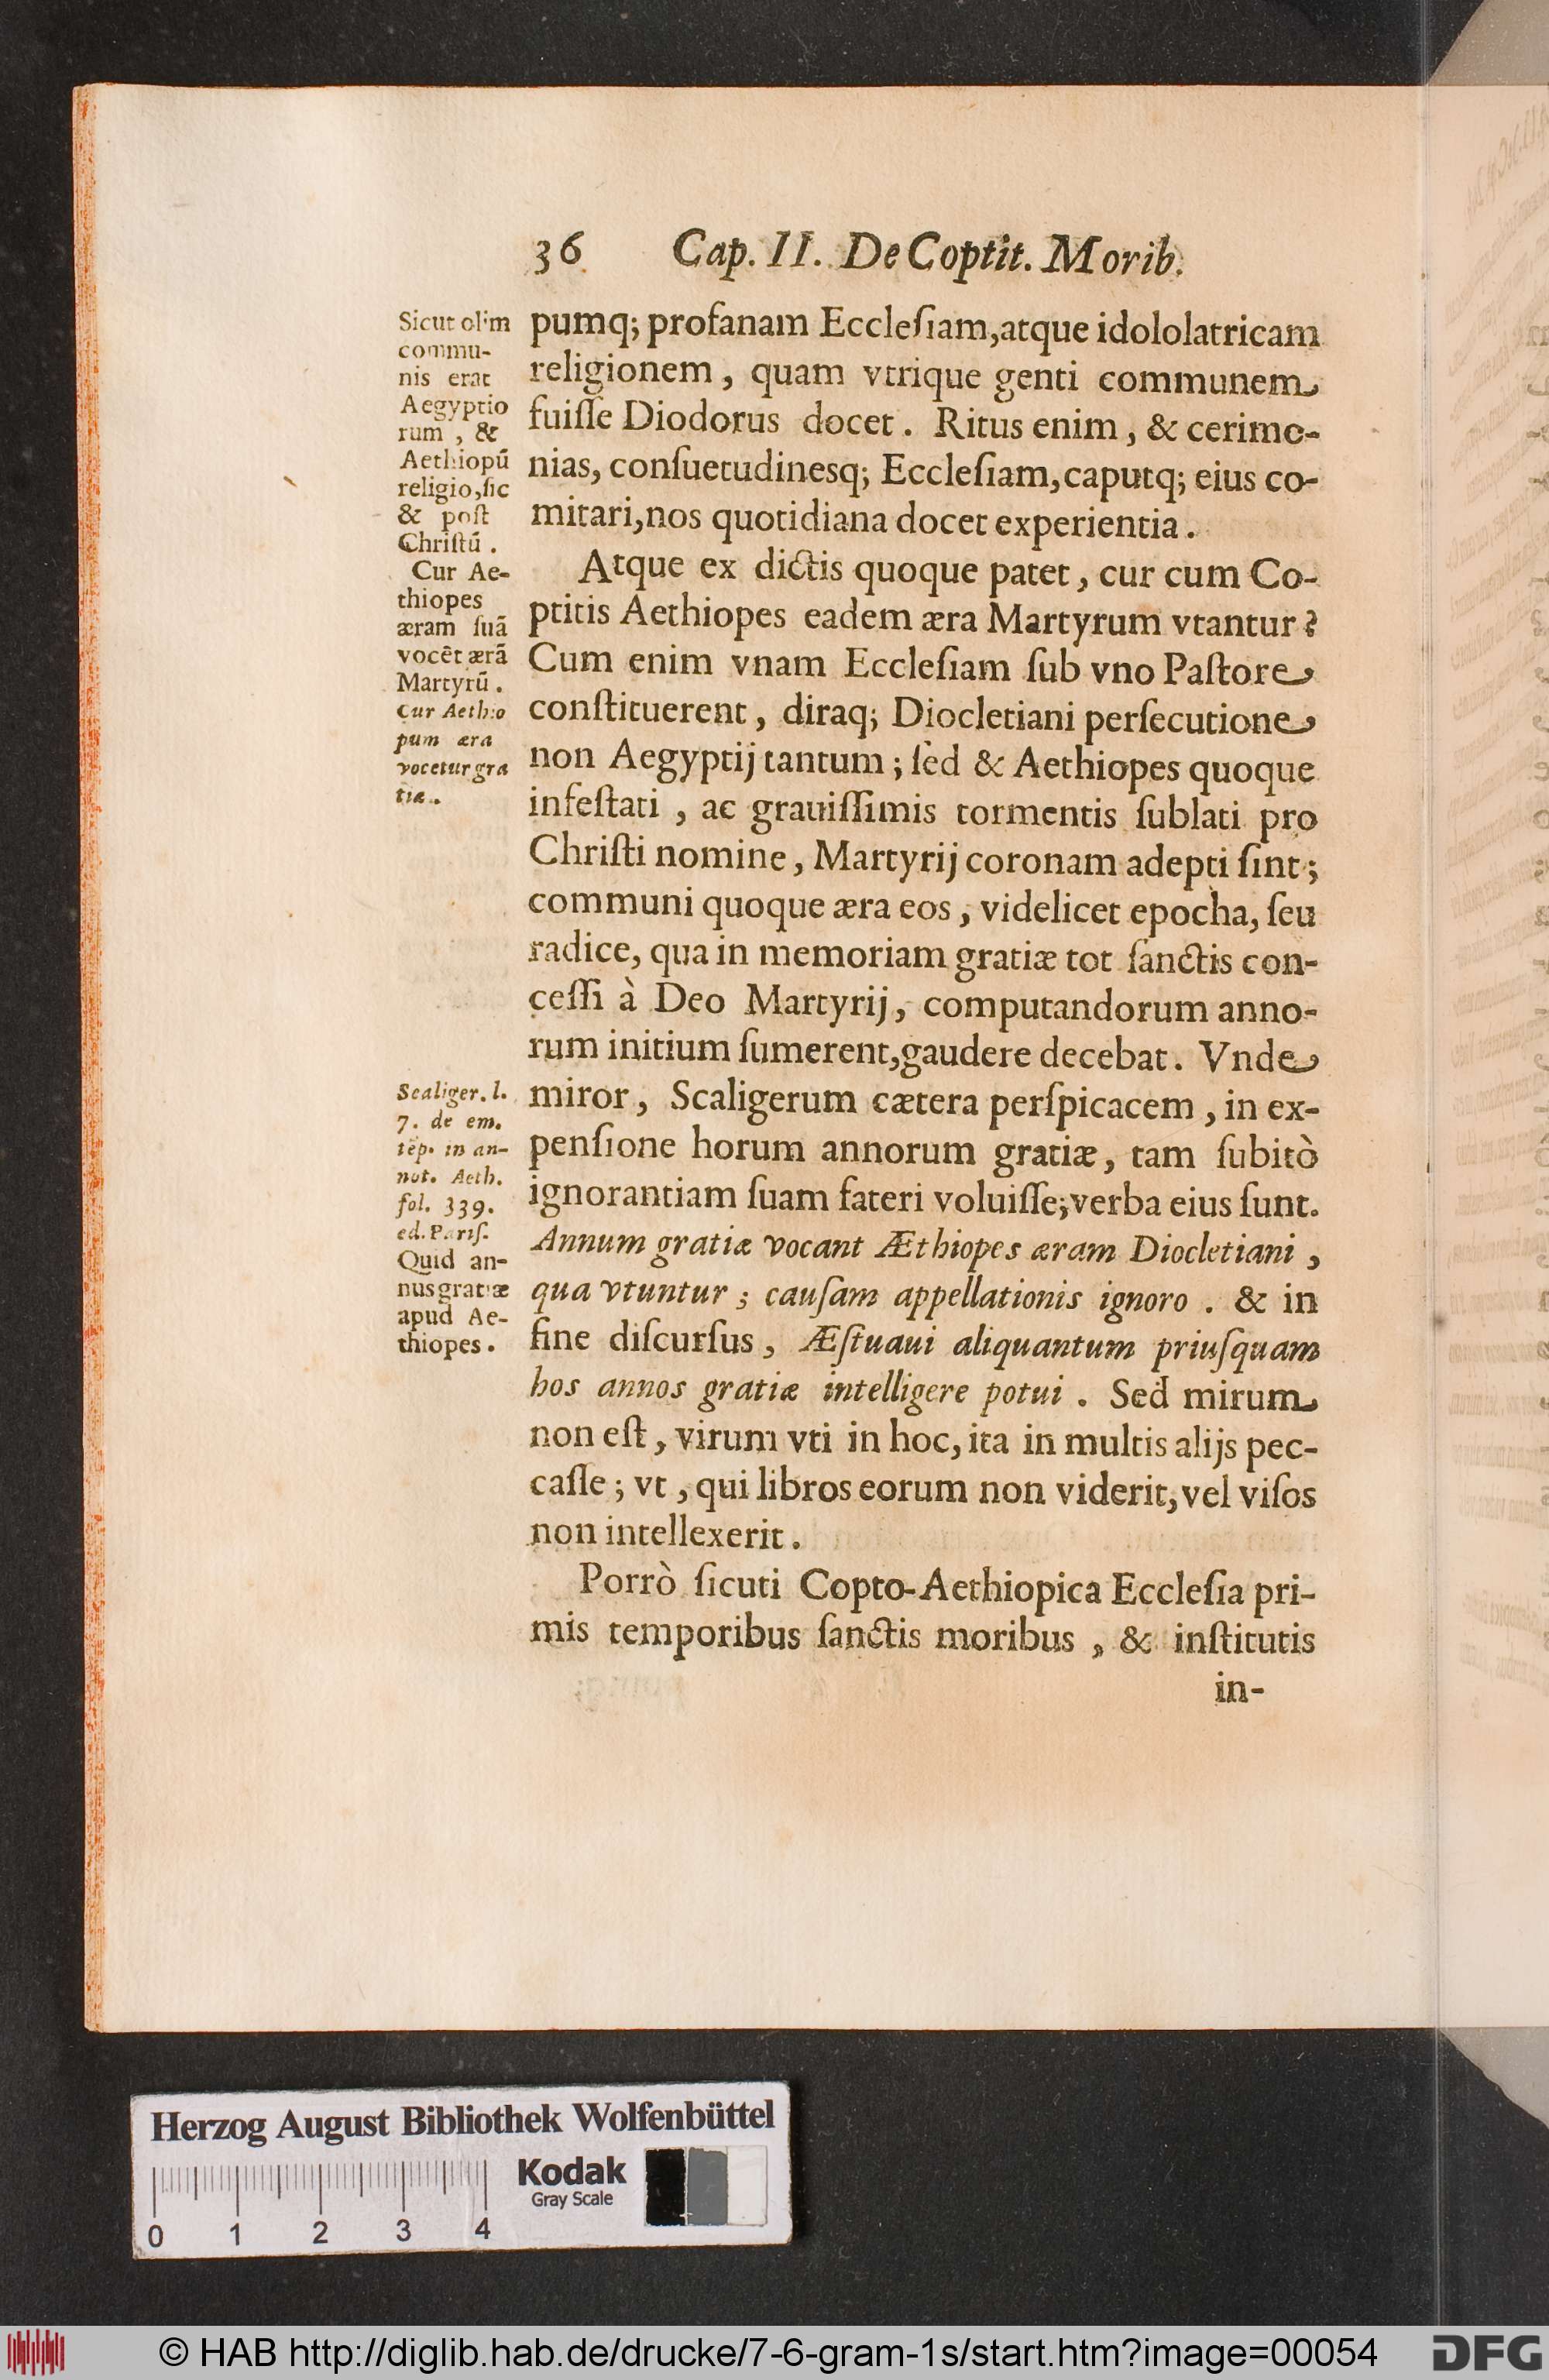 36 Cap. II. De Coptit. Morib.
Sicut olim
commu-
nis erat
Aegyptio
rum , &
Aethiopũ
religio,ſic
& poſt
Chriſtũ .
Cur Ae-
thiopes
æram ſuã
vocẽt ærã
Martyrũ .
Cur Aethio
pum æra
vocetur gra
tiæ.
Scaliger. l.
7. de em.
tẽp. in an-
not. Aeth.
fol. 339.
ed. Pariſ.
Quid an-
nus gratiæ
apud Ae-
thiopes .
pumq; profanam Eccleſiam,atque idololatricam
religionem , quam vtrique genti communem
fuiſſe Diodorus docet . Ritus enim , & cerimo-
nias, conſuetudinesq; Eccleſiam,caputq; eius co-
mitari,nos quotidiana docet experientia .
Atque ex dictis quoque patet , cur cum Co-
ptitis Aethiopes eadem æra Martyrum vtantur ?
Cum enim vnam Eccleſiam ſub vno Paſtore
conſtituerent , diraq; Diocletiani perſecutione
non Aegyptij tantum ; ſed & Aethiopes quoque
infeſtati , ac grauiſſimis tormentis ſublati pro
Chriſti nomine , Martyrij coronam adepti ſint ;
communi quoque æra eos , videlicet epocha, ſeu
radice, qua in memoriam gratiæ tot ſanctis con-
ceſſi à Deo Martyrij, computandorum anno-
rum initium ſumerent,gaudere decebat . Vnde
miror , Scaligerum cætera perſpicacem , in ex-
penſione horum annorum gratiæ, tam ſubitò
ignorantiam ſuam fateri voluiſſe;verba eius ſunt.
Annum gratiæ vocant Æthiopes æram Diocletiani ,
qua vtuntur ; cauſam appellationis ignoro . & in
fine diſcurſus , Æſtuaui aliquantum priuſquam
hos annos gratiæ intelligere potui . Sed mirum
non eſt , virum vti in hoc, ita in multis alijs pec-
caſſe ; vt , qui libros eorum non viderit, vel viſos
non intellexerit .
Porrò ſicuti Copto-Aethiopica Eccleſia pri-
mis temporibus ſanctis moribus , & inſtitutis
in-
Herzog August Bibliothek Wolfenbüttel
Kodak
Gray Scale
0 1 2 3 4
© HAB http://diglib.hab.de/drucke/7-6-gram-1s/start.htm?image=00054
DFG